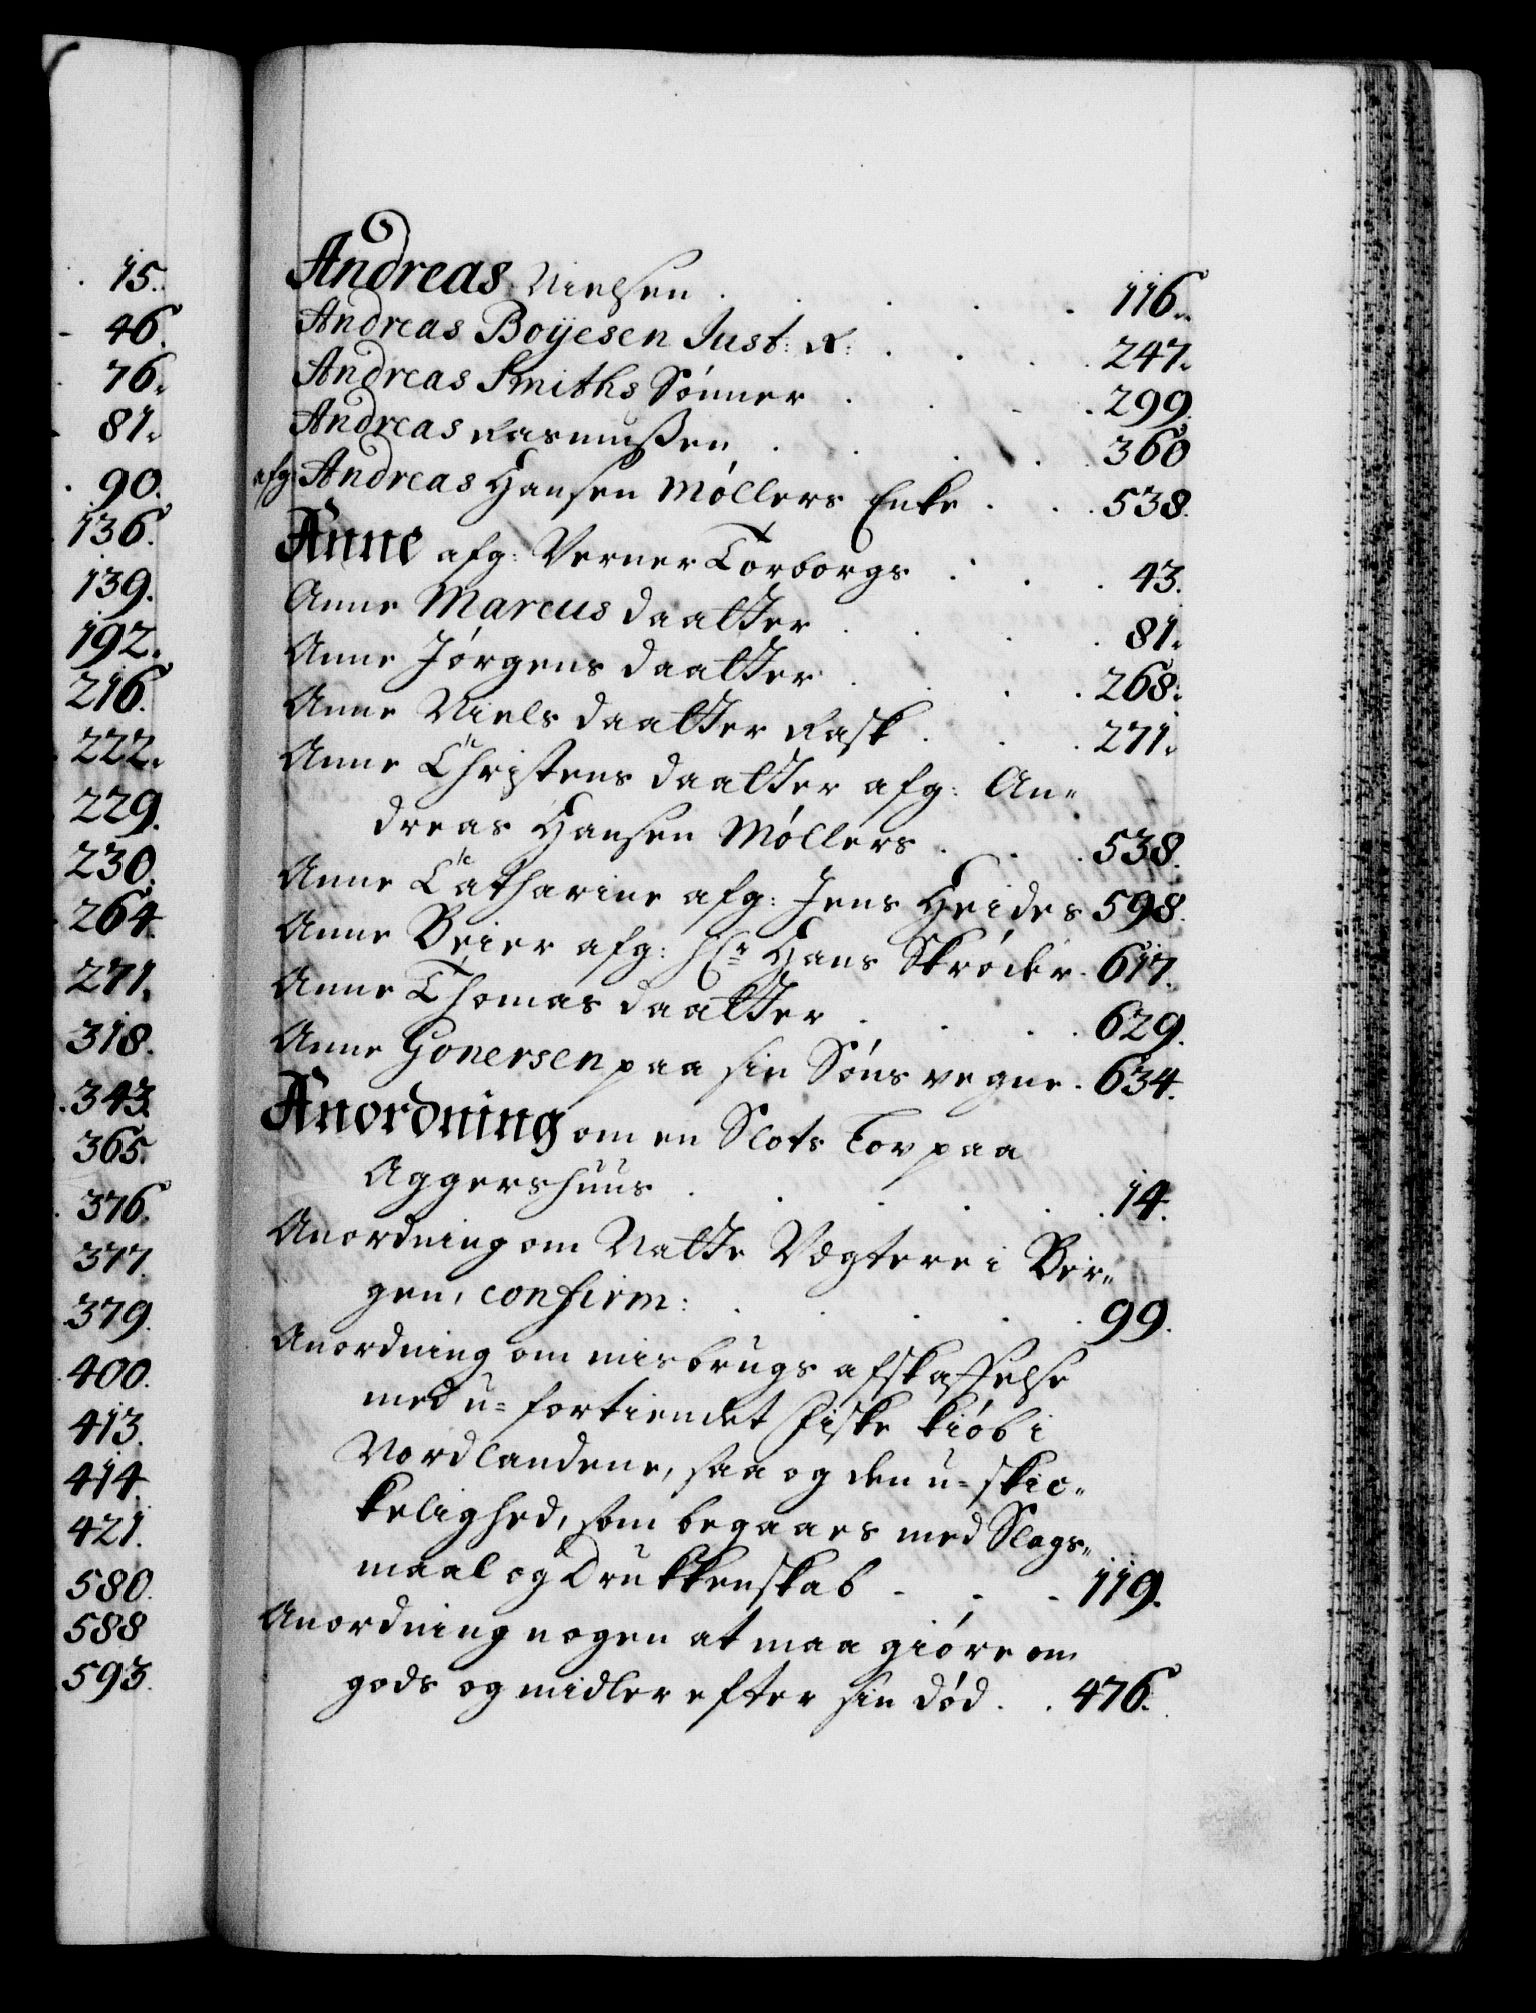 15.
46.
76.
81.
90.
136.
139.
192.
216.
222.
229.
230.
264.
271.
318.
343.
365.
376.
377.
379.
400.
413.
414.
421.
580.
588
593.
Andreas Nielsen . . . . . 116.
Andreas Boÿesen Just: R: . . . . 247.
Andreas Smiths Sønner . . . . 299.
Andreas Rasmußen . . . . . 360
afg: Andreas Hansen Møllers Enke . . . 538.
Anne afg: Verner Torborgs . . . . 43.
Anne Marcus daatter . . . . 81.
Anne Jørgens daatter . . . . 268.
Anne Niels daatter Rask . . . 271.
Anne Christens daatter afg: An-
dreas Hansen Møllers . . . 538.
Anne Catharine afg: Jens Heides 598.
Anne Beier afg: Hr Hans Skrøder . 617.
Anne Thomas daatter . . . . 629.
Anne Gonersen paa sin Søns vegne . 634.
Anordning om en Slots Lov paa
Aggershuus . . . . . 14.
Anordning om Natte Vægtere i Ber-
gen, confirm: . . . . . 99.
Anordning om misbrugs afskaffelse
med u-fortiendet Fiske kiøb i
Nordlandene, saa og den u-skic-
kelighed, som begaaes med Slags-
maal og Drukkenskab - - - 119.
Anordning nogen at maa giøre om
gods og midler efter sin død . . 476.